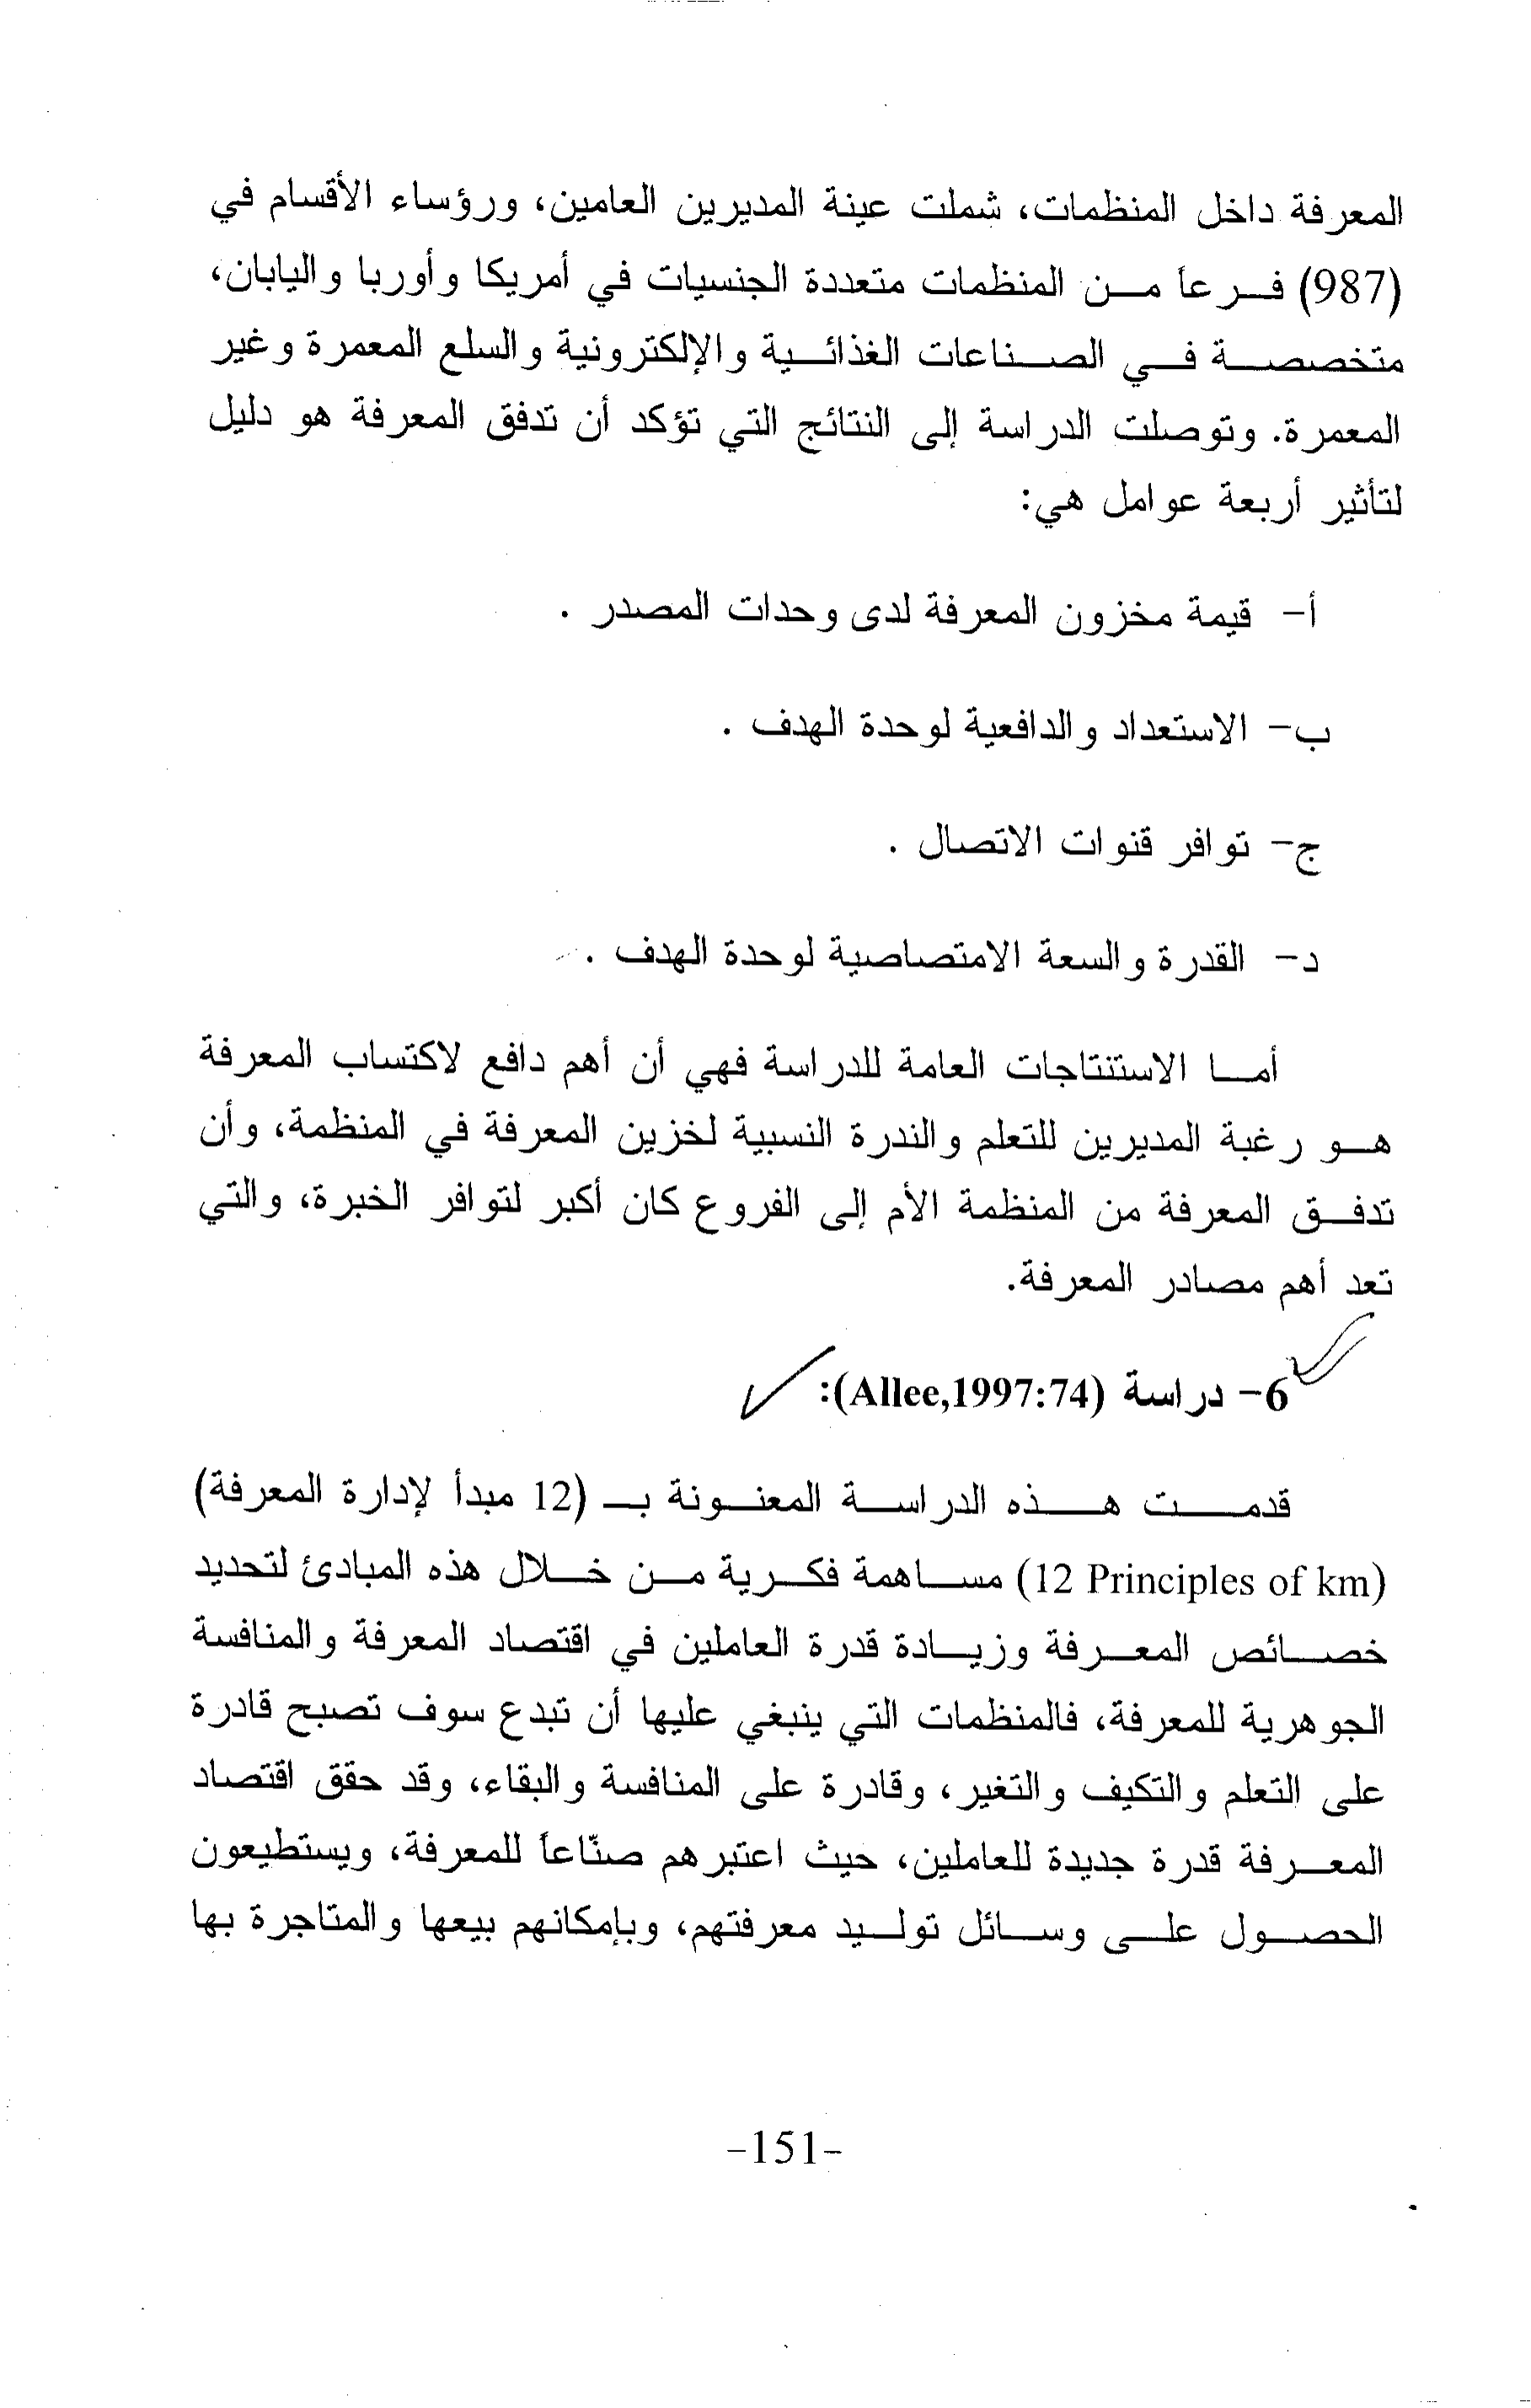 المعرفة داخل المنظمات، شملت عينة المديرين العامين، ورؤساء الأقسام في
(987) فرعاً من المنظمات متعددة الجنسيات في أمريكا وأوربا واليابان،
متخصصة في الصناعات الغذائية والإلكترونية والسلع المعمرة وغير
المعمرة. وتوصلت الدراسة إلى النتائج التي تؤكد أن تدفق المعرفة هو دليل
لتأثير أربعة عوامل هي:
أ- قيمة مخزون المعرفة لدى وحدات المصدر .
ب- الاستعداد والدافعية لوحدة الهدف .
ج- توافر قنوات الاتصال .
د- القدرة والسعة الامتصاصية لوحدة الهدف .
أما الاستنتاجات العامة للدراسة فهي أن أهم دافع لاكتساب المعرفة
هو رغبة المديرين للتعلم والندرة النسبية لخزين المعرفة في المنظمة، وأن
تدفق المعرفة من المنظمة الأم إلى الفروع كان أكبر لتوافر الخبرة، والتي
تعد أهم مصادر المعرفة.
6- دراسة (Allee,1997:74):
قدمت هذه الدراسة المعنونة بـ (12 مبدأ لإدارة المعرفة)
(12 Principles of km) مساهمة فكرية من خلال هذه المبادئ لتحديد
خصائص المعرفة وزيادة قدرة العاملين في اقتصاد المعرفة والمنافسة
الجوهرية للمعرفة، فالمنظمات التي ينبغي عليها أن تبدع سوف تصبح قادرة
على التعلم والتكيف والتغير، وقادرة على المنافسة والبقاء، وقد حقق اقتصاد
المعرفة قدرة جديدة للعاملين، حيث اعتبرهم صنّاعاً للمعرفة، ويستطيعون
الحصول على وسائل توليد معرفتهم، وبإمكانهم بيعها والمتاجرة بها
-151-